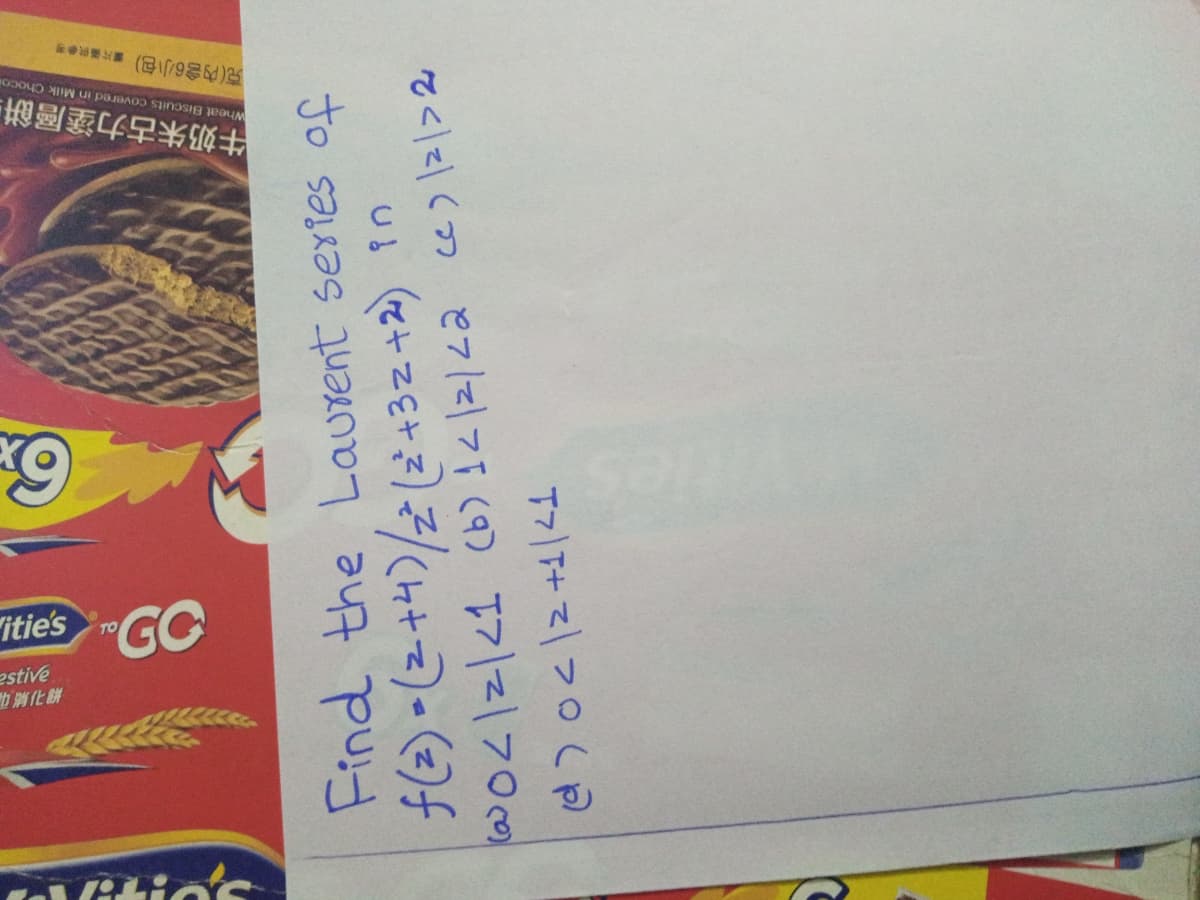 Find the Laurent series of
f(z) = (z+4)/z²(z²+3z+2) in
(a) 0<|z|<1 (b) 1<|z|<2 (c) |z|>2
(d) 0<|z+1|<1
牛奶朱古力塗層餅
Wheat Biscuits covered in Milk Chocol
克(內含6小包)
6x
TO GO
itie's
estive
消化餅
Vitie's